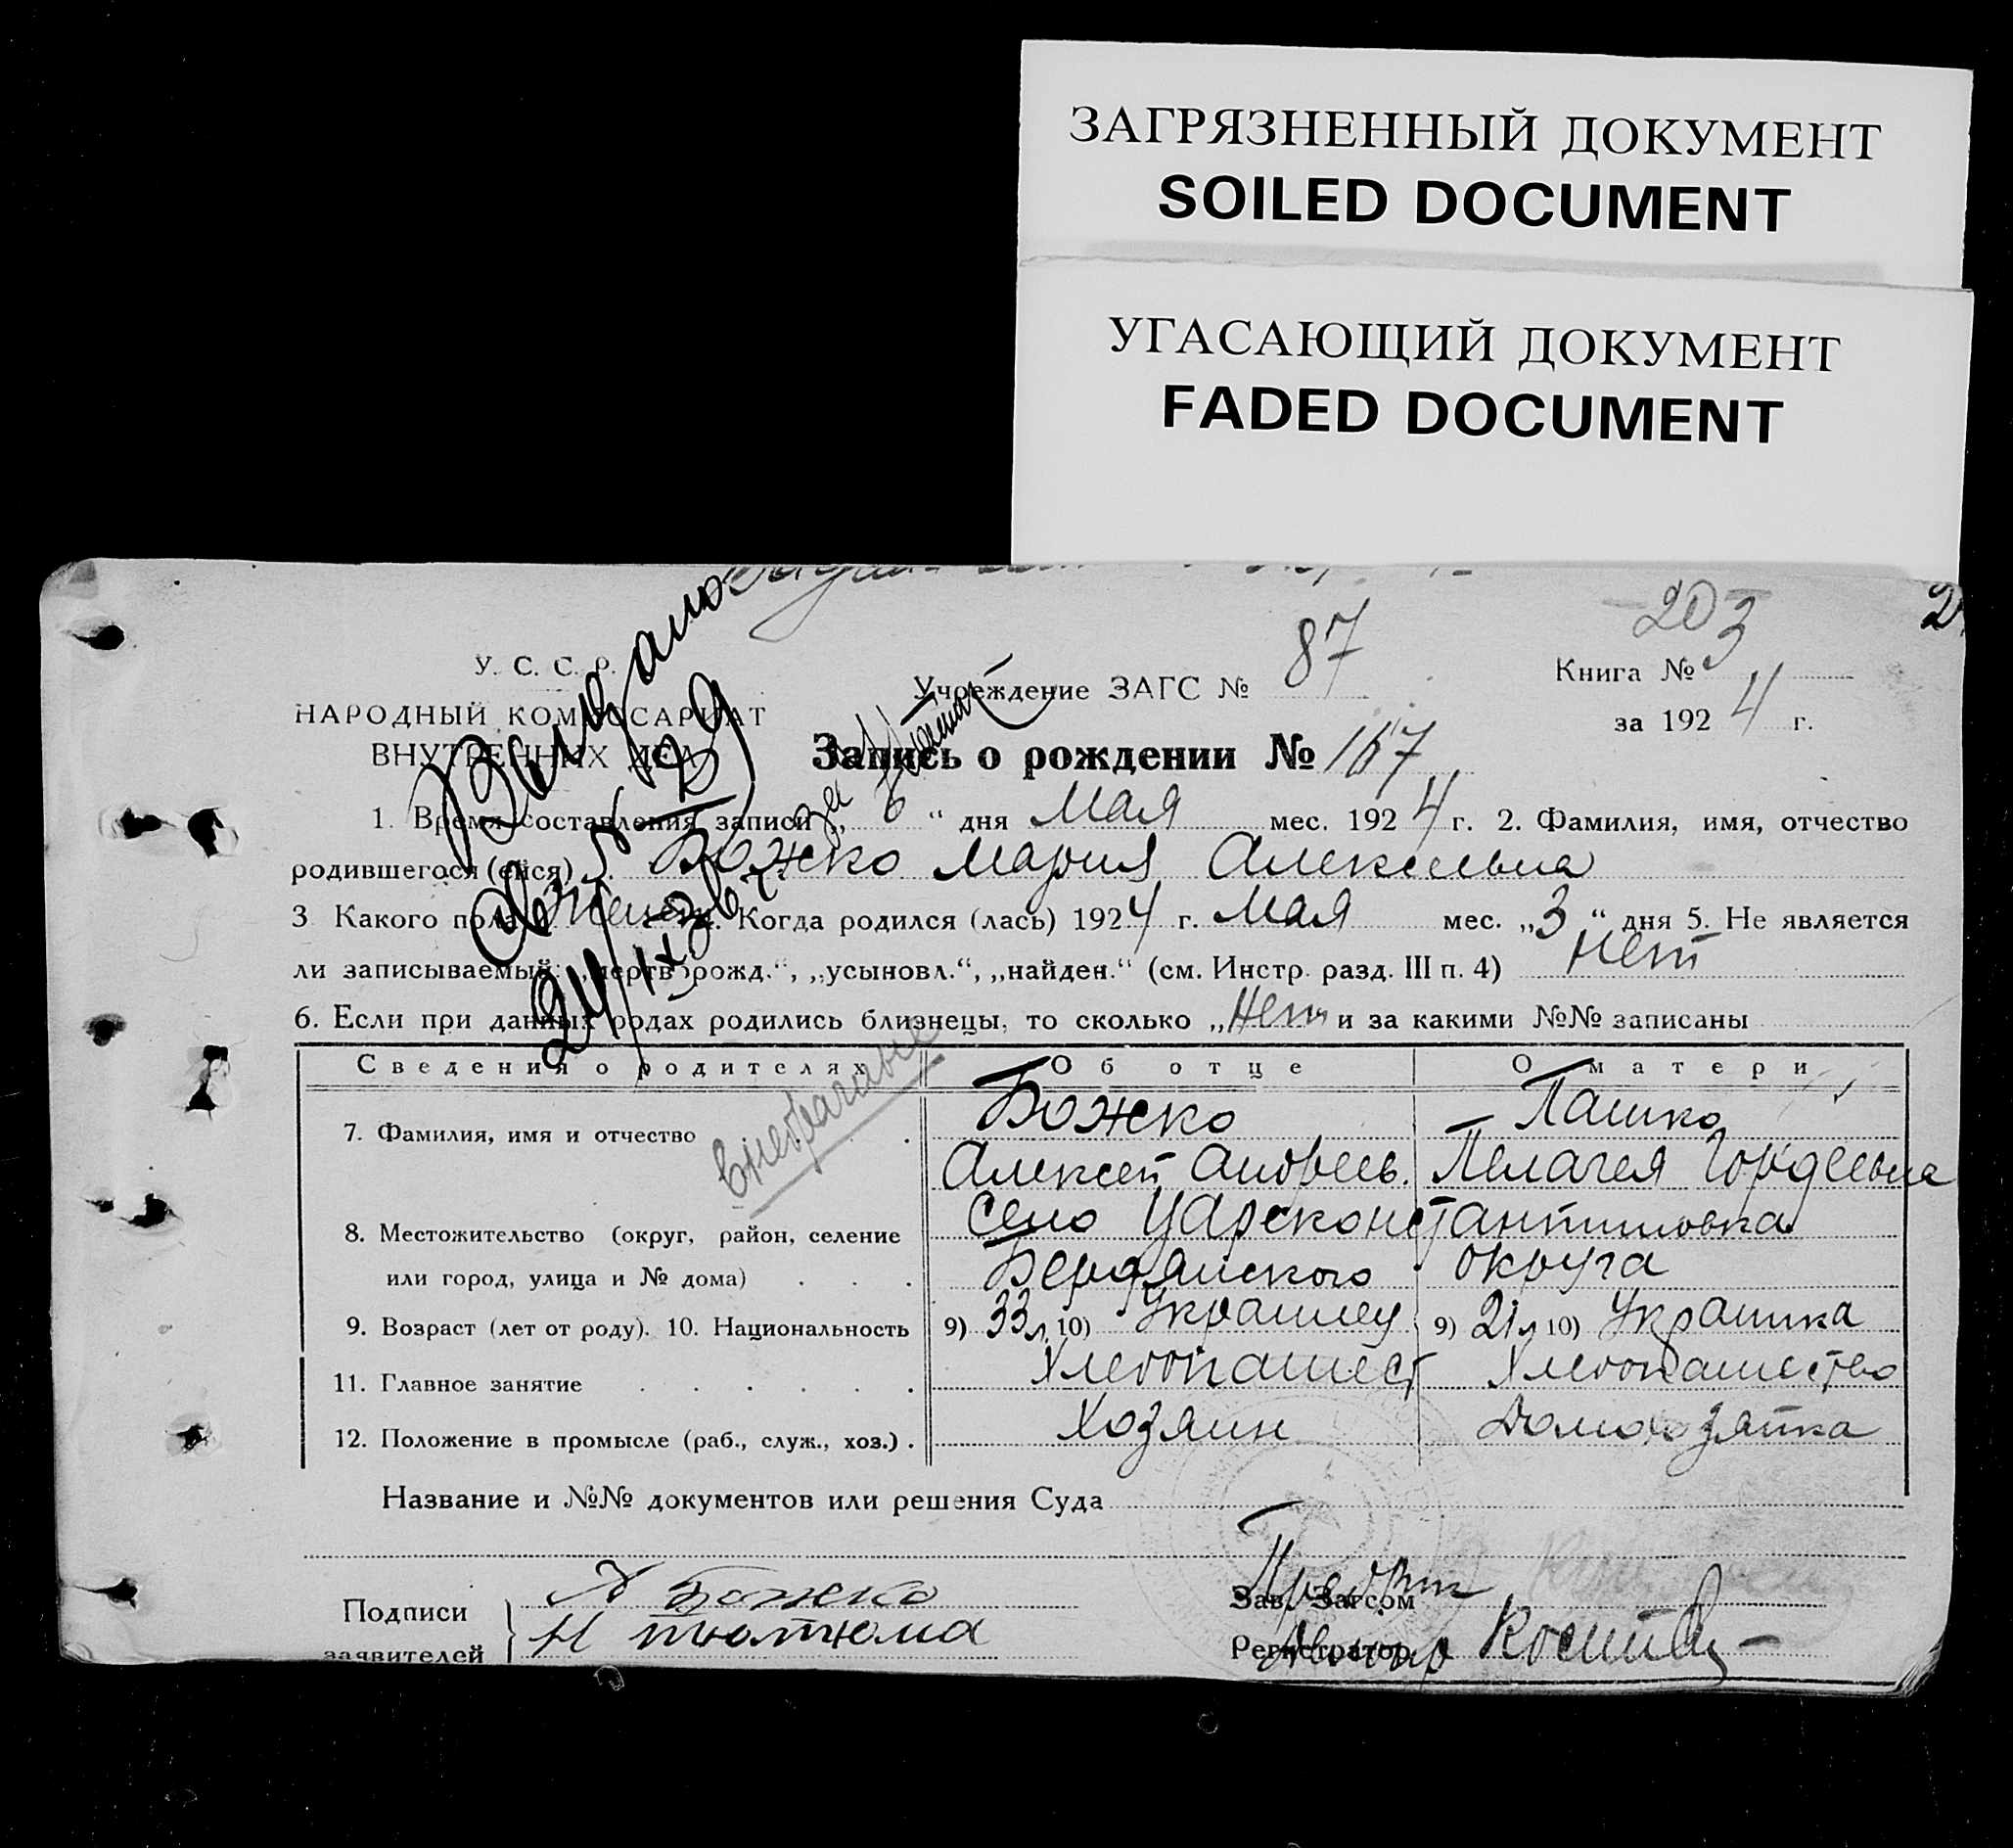 ЗАГРЯЗНЕННЫЙ ДОКУМЕНТ
SOILED DOCUMENT
УГАСАЮЩИЙ ДОКУМЕНТ
FADED DOCUMENT
203
87
У. С. С. Р.
Учреждение ЗАГС №
Книга №
НАРОДНЫЙ КОМИССАРИАТ
за 1924 г.
ВНУТРЕННИХ ДЕЛ
Запись о рождении № 167
1. Время составления записи „6“ дня Мая мес. 1924 г. 2. Фамилия, имя, отчество
родившегося (ейся) Божко Мария Алексеевна
3 Какого пола Женск. Когда родился (лась) 1924 г. Мая мес. „3“ дня 5. Не является
ли записываемый: „мертворожд.“, „усыновл.“, „найден.“ (см. Инстр. разд. III п. 4) Нет
6. Если при данных родах родились близнецы, то сколько „Нет и за какими №№ записаны
24/IX 36 г.
Сведения о родителях Об отце О матери
внебрачные
7. Фамилия, имя и отчество Божко Пашко
Алексей Андреев. Пелагея Гордеевна
8. Местожительство (округ, район, селение Село Царсконстантиновка
или город, улица и № дома) Бердянского округа
9. Возраст (лет от роду). 10. Национальность 9) 33 л. 10) Украинец 9) 21 л 10) Украинка
11. Главное занятие Хлебопашест Хлебопашество
12. Положение в промысле (раб., служ., хоз.) Хозяин Домохозяйка
Название и №№ документов или решения Суда
Подписи
заявителей
А Божко
Зав. Загсом
Регистратор